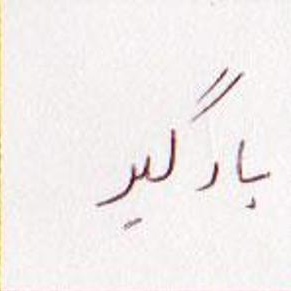 بادگیر